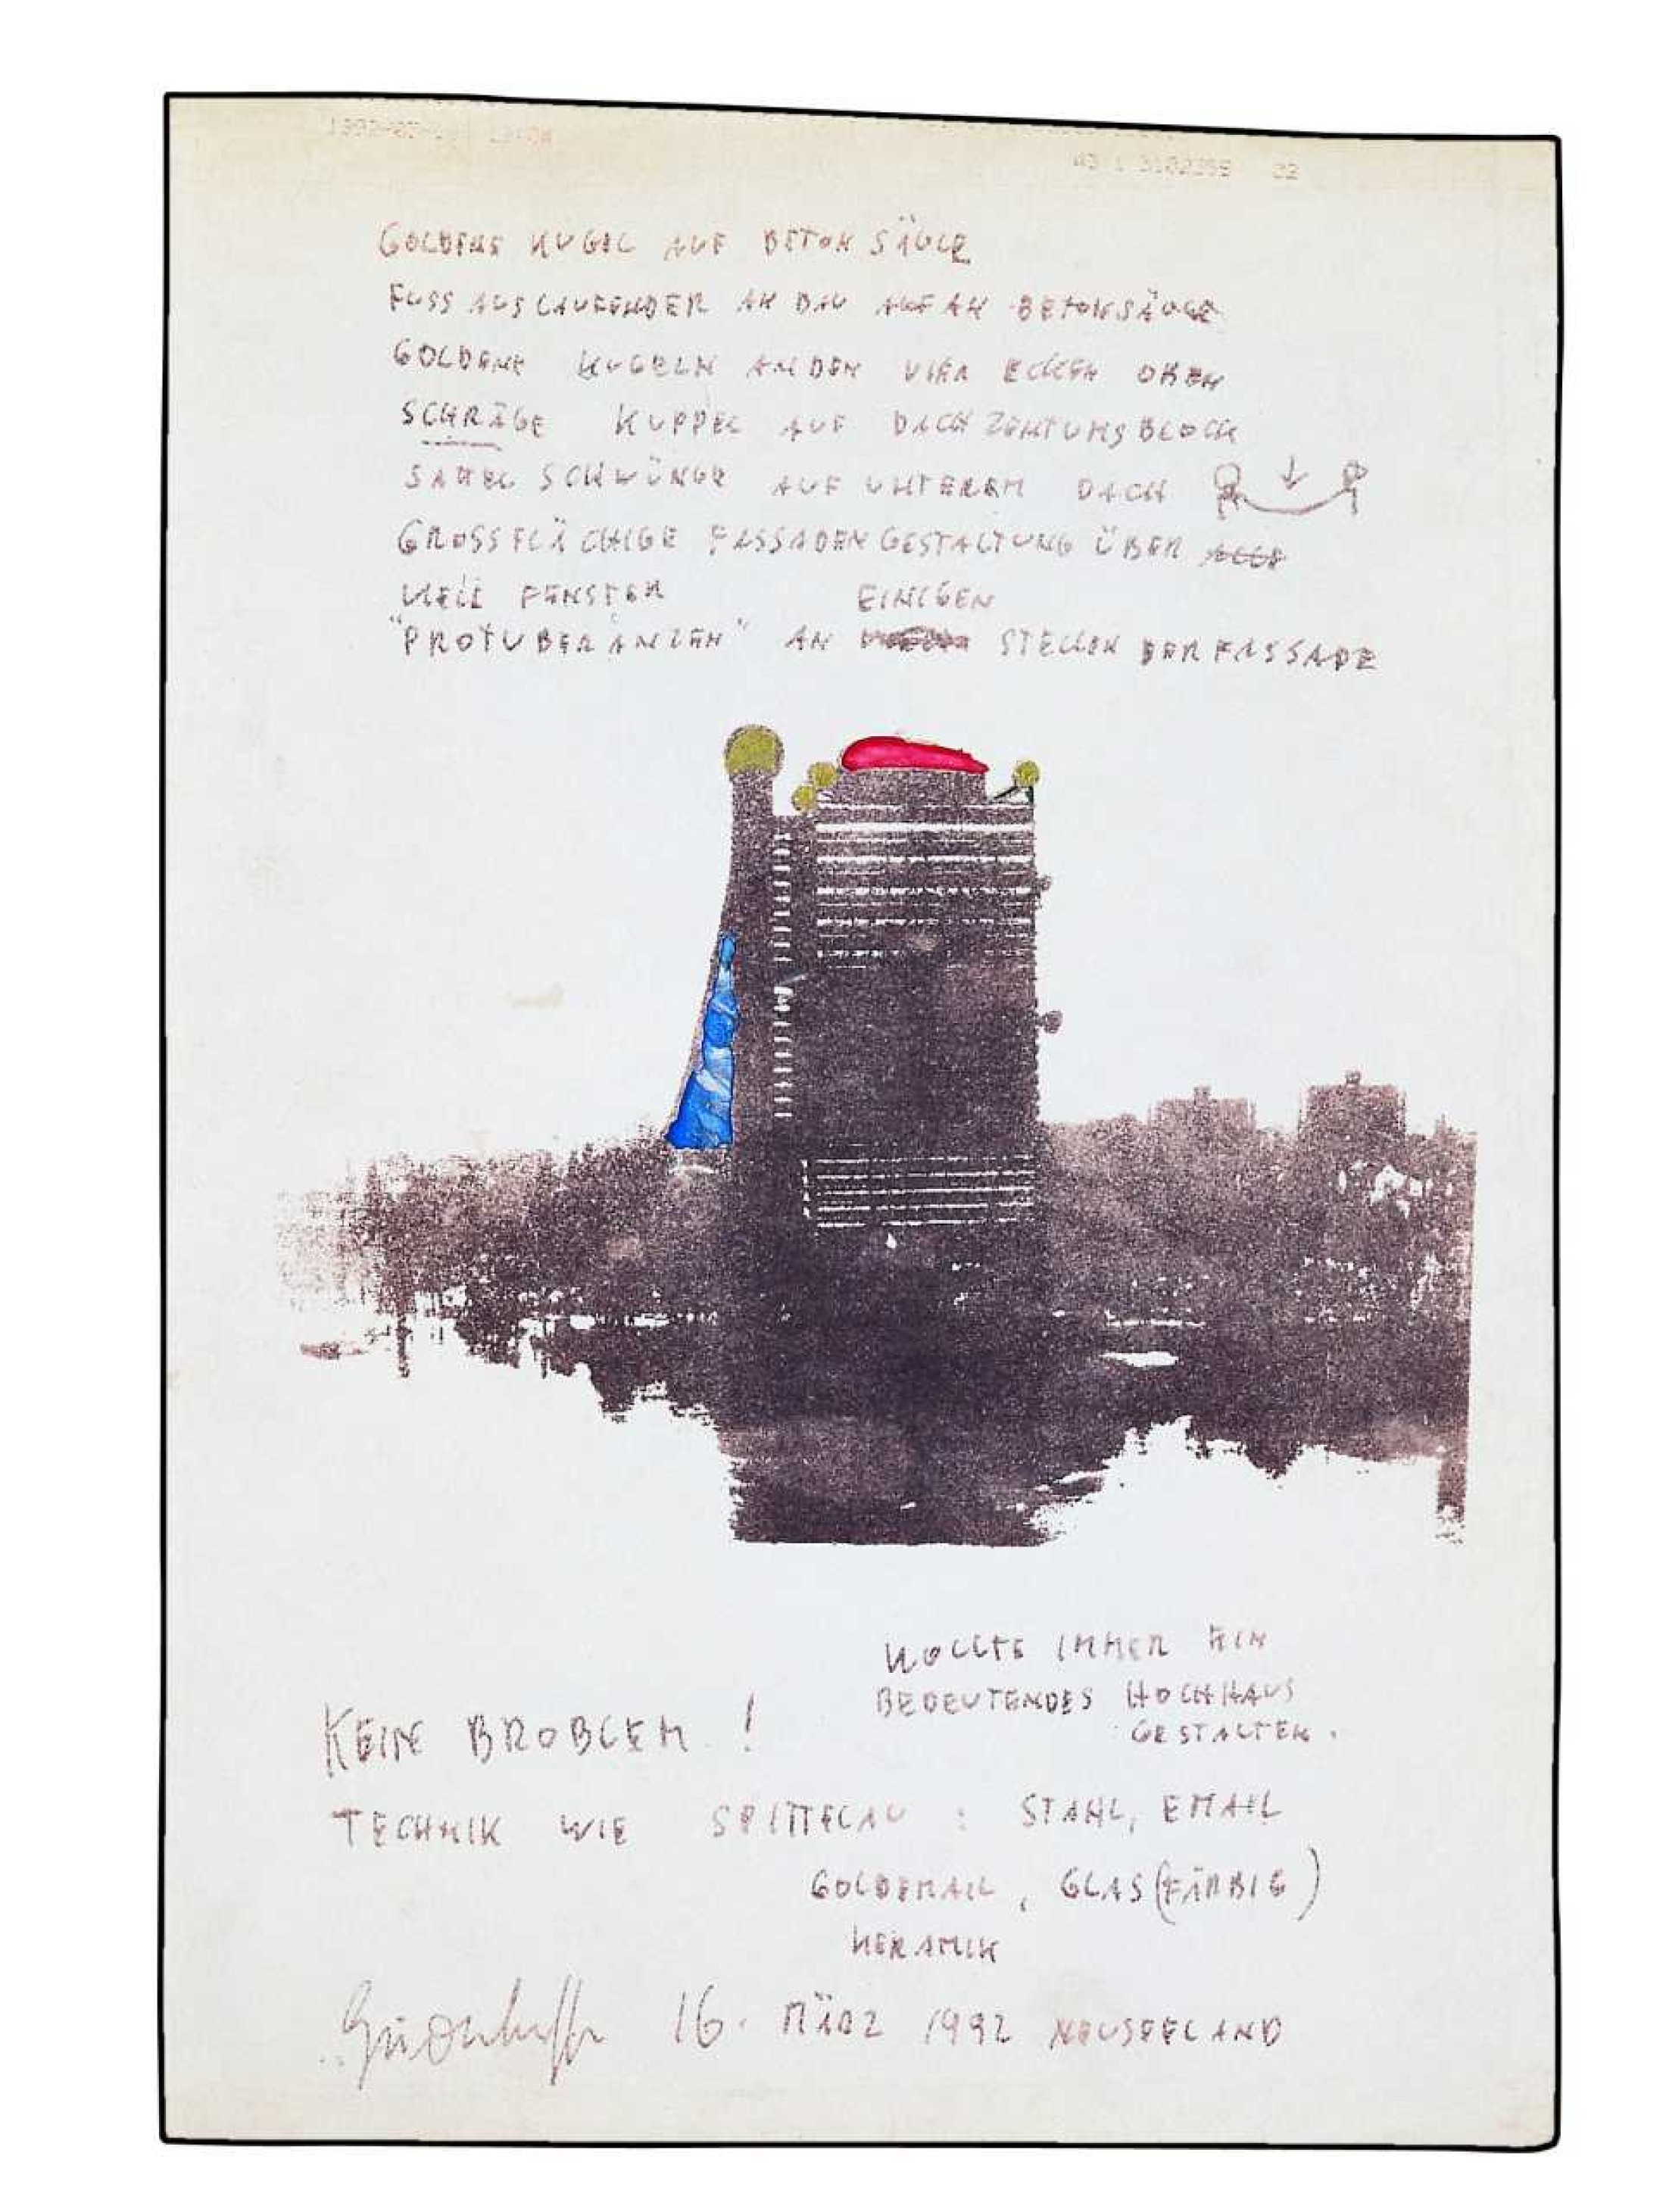 GOLDENE KUGEL AUF BETON SÄULE
FUSS AUSLAUFENDER AN BAU AN BETONSÄULE
GOLDENE KUGELN AN DEN VIER ECKEN OBEN
SCHRÄGE KUPPEL AUF DACH BLOCK
SATTEL SCHWÜNGE AUF UNTEREM DACH
GROSSFLÄCHIGE FASSADENGESTALTUNG ÜBER
FENSTER EINIGEN
"PROTUBERANZEN" AN STELLEN DER FASSADE
WOLLTE IMMER EIN
BEDEUTENDES HOCHHAUS
GESTALTEN.
KEIN BROBLEM !
TECHNIK WIE SPITTELAU : STAHL, EMAIL
GOLDEMAIL, GLAS (FÄRBIG)
KERAMIK
16. MÄRZ 1992 NEUSEELAND